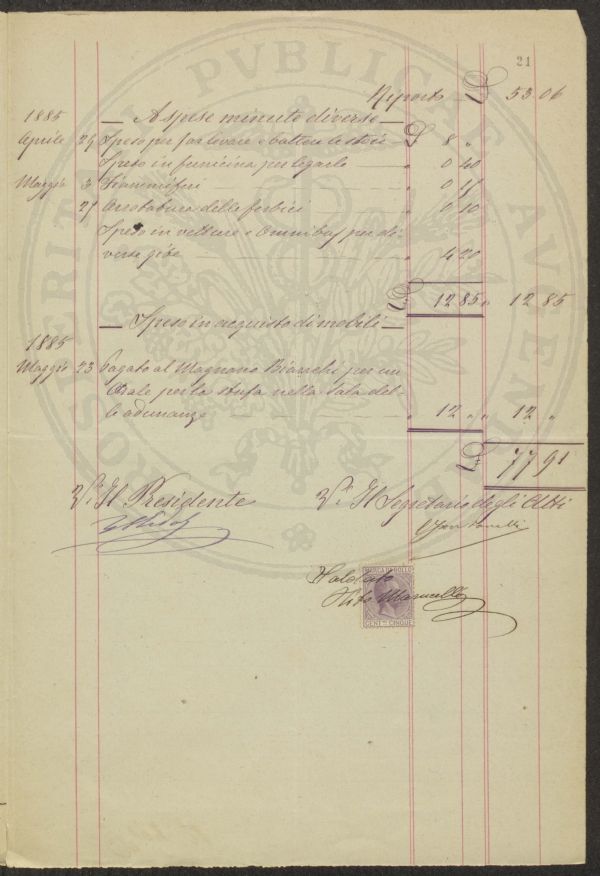 21
Riporto £ 53.06
1885
— A spese minute diverse —
Aprile 29 Spese per far levare e battere le stoje — £ 8 "
Spese in funicina per legarle — " 0 40
Maggio 3 Fiammiferi — " 0 15
21 Arrotatura delle forbici — " 0 10
Spese in vetture e Omnibus per di-
verse gite — " 4 20
£ 12 85 " 12 85
— Spese in acquisto di mobili —
1885
Maggio 23 Pagato al Magnano Bianchi per un
Orale per la stufa nella Sala del-
le adunanze — " 12 " " 12 "
£ 77 91
V.° Il Presidente
V.° Il Segretario degli Atti
Saldato
Vito Marucelli
MARCA DA BOLLO
CENT.MI CINQUE
PVBLICAE